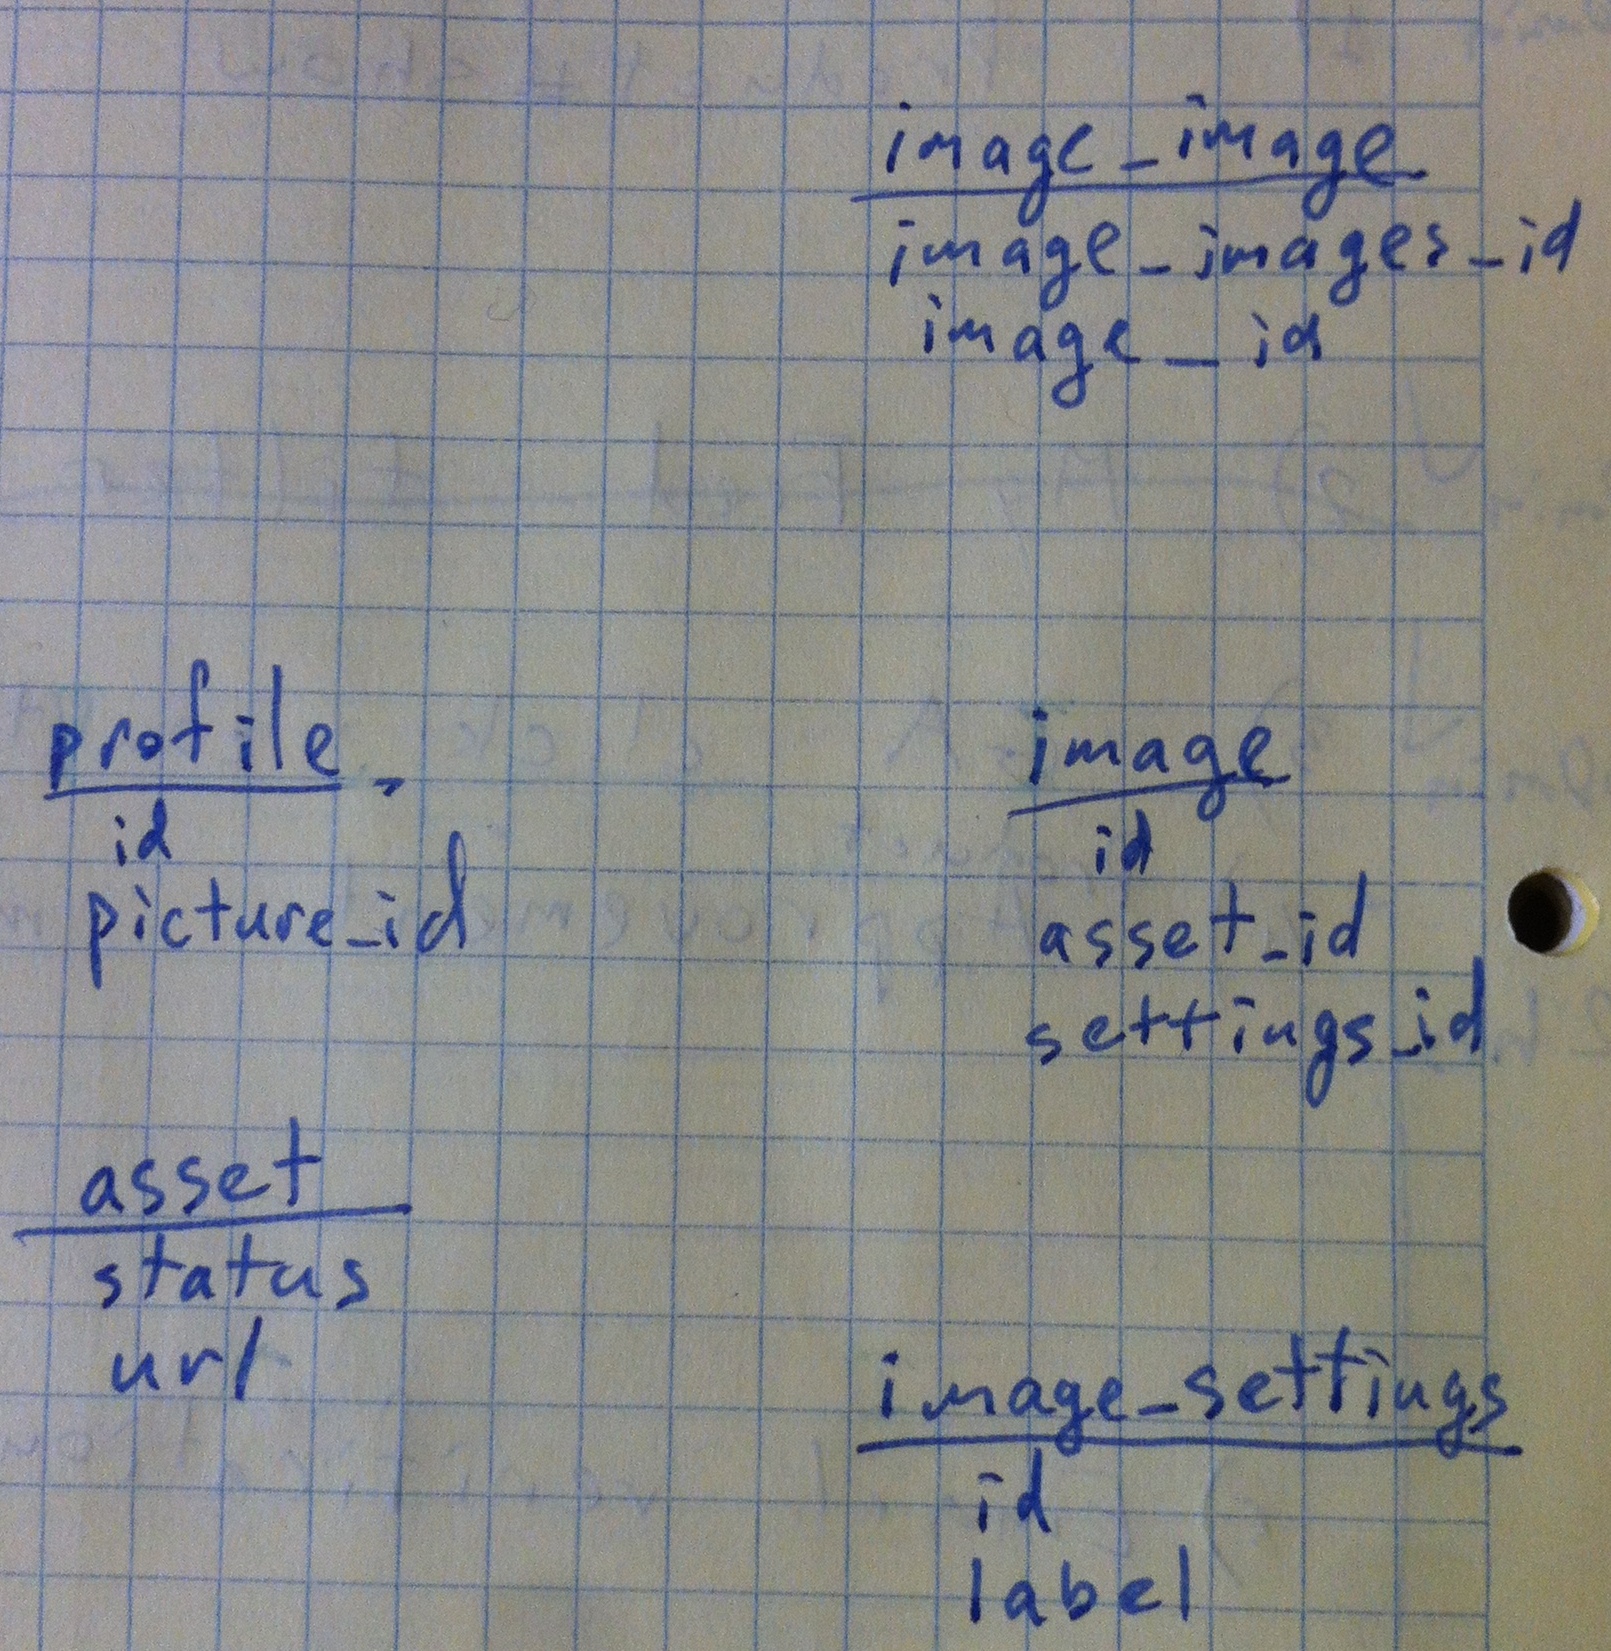 image_image
image_images_id
image_id
profile
id
picture_id
image
id
asset_id
settings_id
asset
status
url
image_settings
id
label